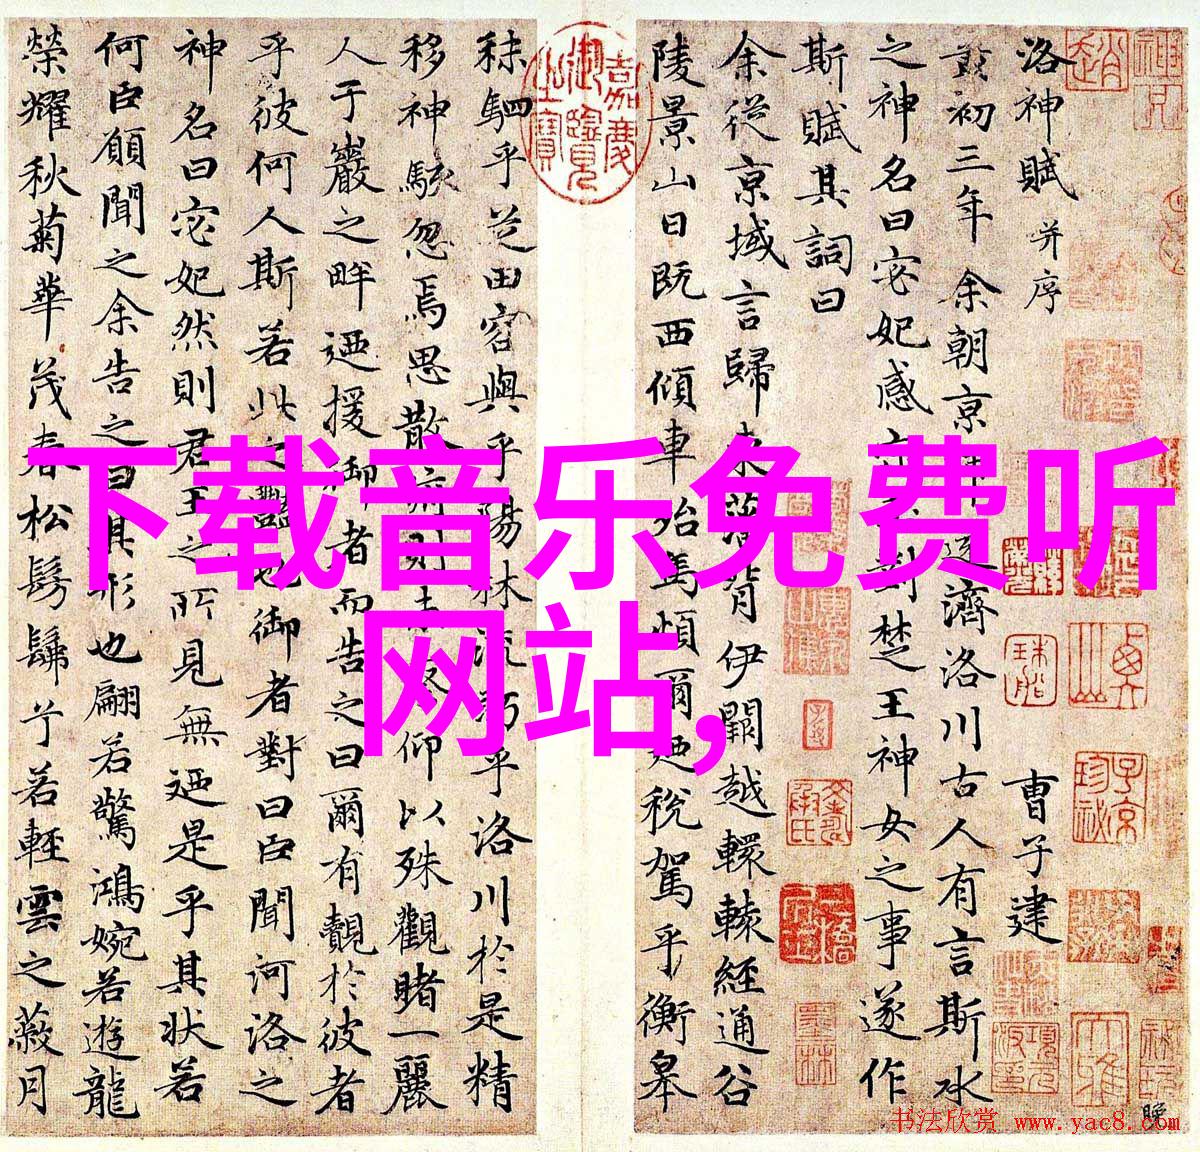 下载音乐免费听
网站,
洛神賦 并序 曹子建
初三年余朝京還濟洛川古人有言斯水
之神名曰宓妃感對楚王神女之事遂作
斯賦其詞曰
余從京域言歸東藩背伊闕越轘轅經通谷
陵景山日既西傾車殆馬煩爾迺稅駕乎衡皋
秣駟乎芝田容與乎陽林流眄乎洛川於是精
移神駭忽焉思散仰以殊觀睹一麗
人于巖之畔迺援御者而告之曰爾有覿於彼者
乎彼何人斯若此之豔也御者對曰臣聞河洛之
神名曰宓妃然則君王之所見無迺是乎其狀若
何臣願聞之余告之曰其形也翩若驚鴻婉若遊龍
榮耀秋菊華茂春松髣髴兮若輕雲之蔽月
嘉慶御覽之寶
书法欣赏 www.yac8.com